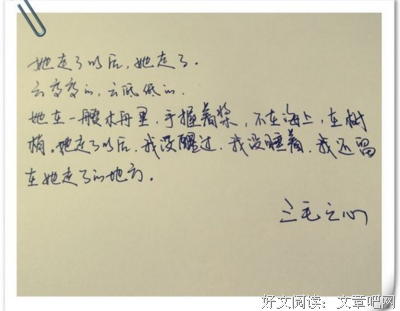 她走了以后,她走了.
云低低的.
她在一艘木舟里,手握着桨,不在海上,在树
梢,她走了以后,我没醒过,我没睡着,我还留
在她走了的地方.
三毛之心
好文阅读:文章吧网